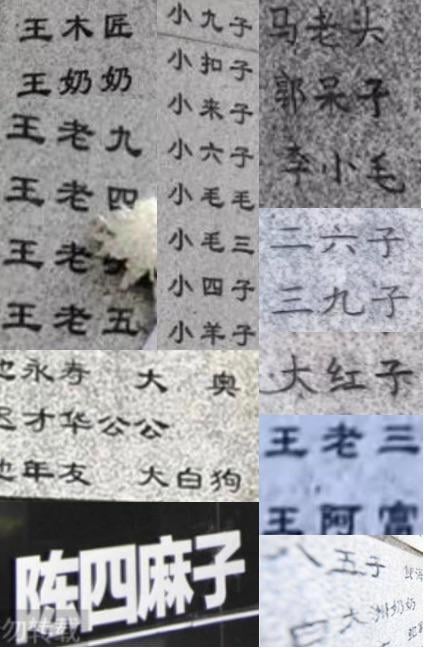 王木匠
王奶奶
王老九
王老四
王老
王老五
小九子
小扣子
小来子
小六子
小毛毛
小毛三
小四子
小羊子
马老头
郭呆子
李小毛
二六子
三九子
大红子
王老三
王阿富
永寿 大 奥
才华 公公
年友 大白狗
陈四麻子
勿转载
五子
大 奶奶